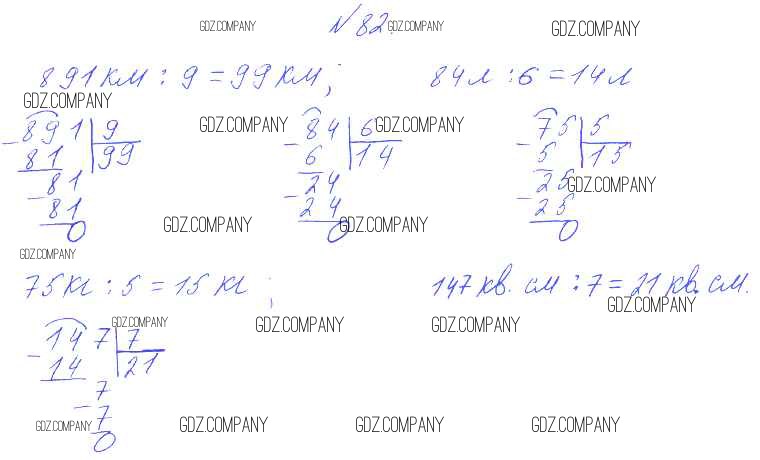 GDZ.COMPANY №82. GDZ.COMPANY GDZ.COMPANY
891 км : 9 = 99 км; 84 л : 6 = 14 л
GDZ.COMPANY
891 | 9 GDZ.COMPANY 84 | 6 GDZ.COMPANY 75 | 5
81 99 6 14 5 15
81 24 25 GDZ.COMPANY
81 24 25
0 GDZ.COMPANY 0 GDZ.COMPANY 0
GDZ.COMPANY
75 кг : 5 = 15 кг; 147 кв. см : 7 = 21 кв. см.
GDZ.COMPANY
GDZ.COMPANY GDZ.COMPANY GDZ.COMPANY
147 | 7
14 21
7
7
GDZ.COMPANY GDZ.COMPANY GDZ.COMPANY GDZ.COMPANY
0